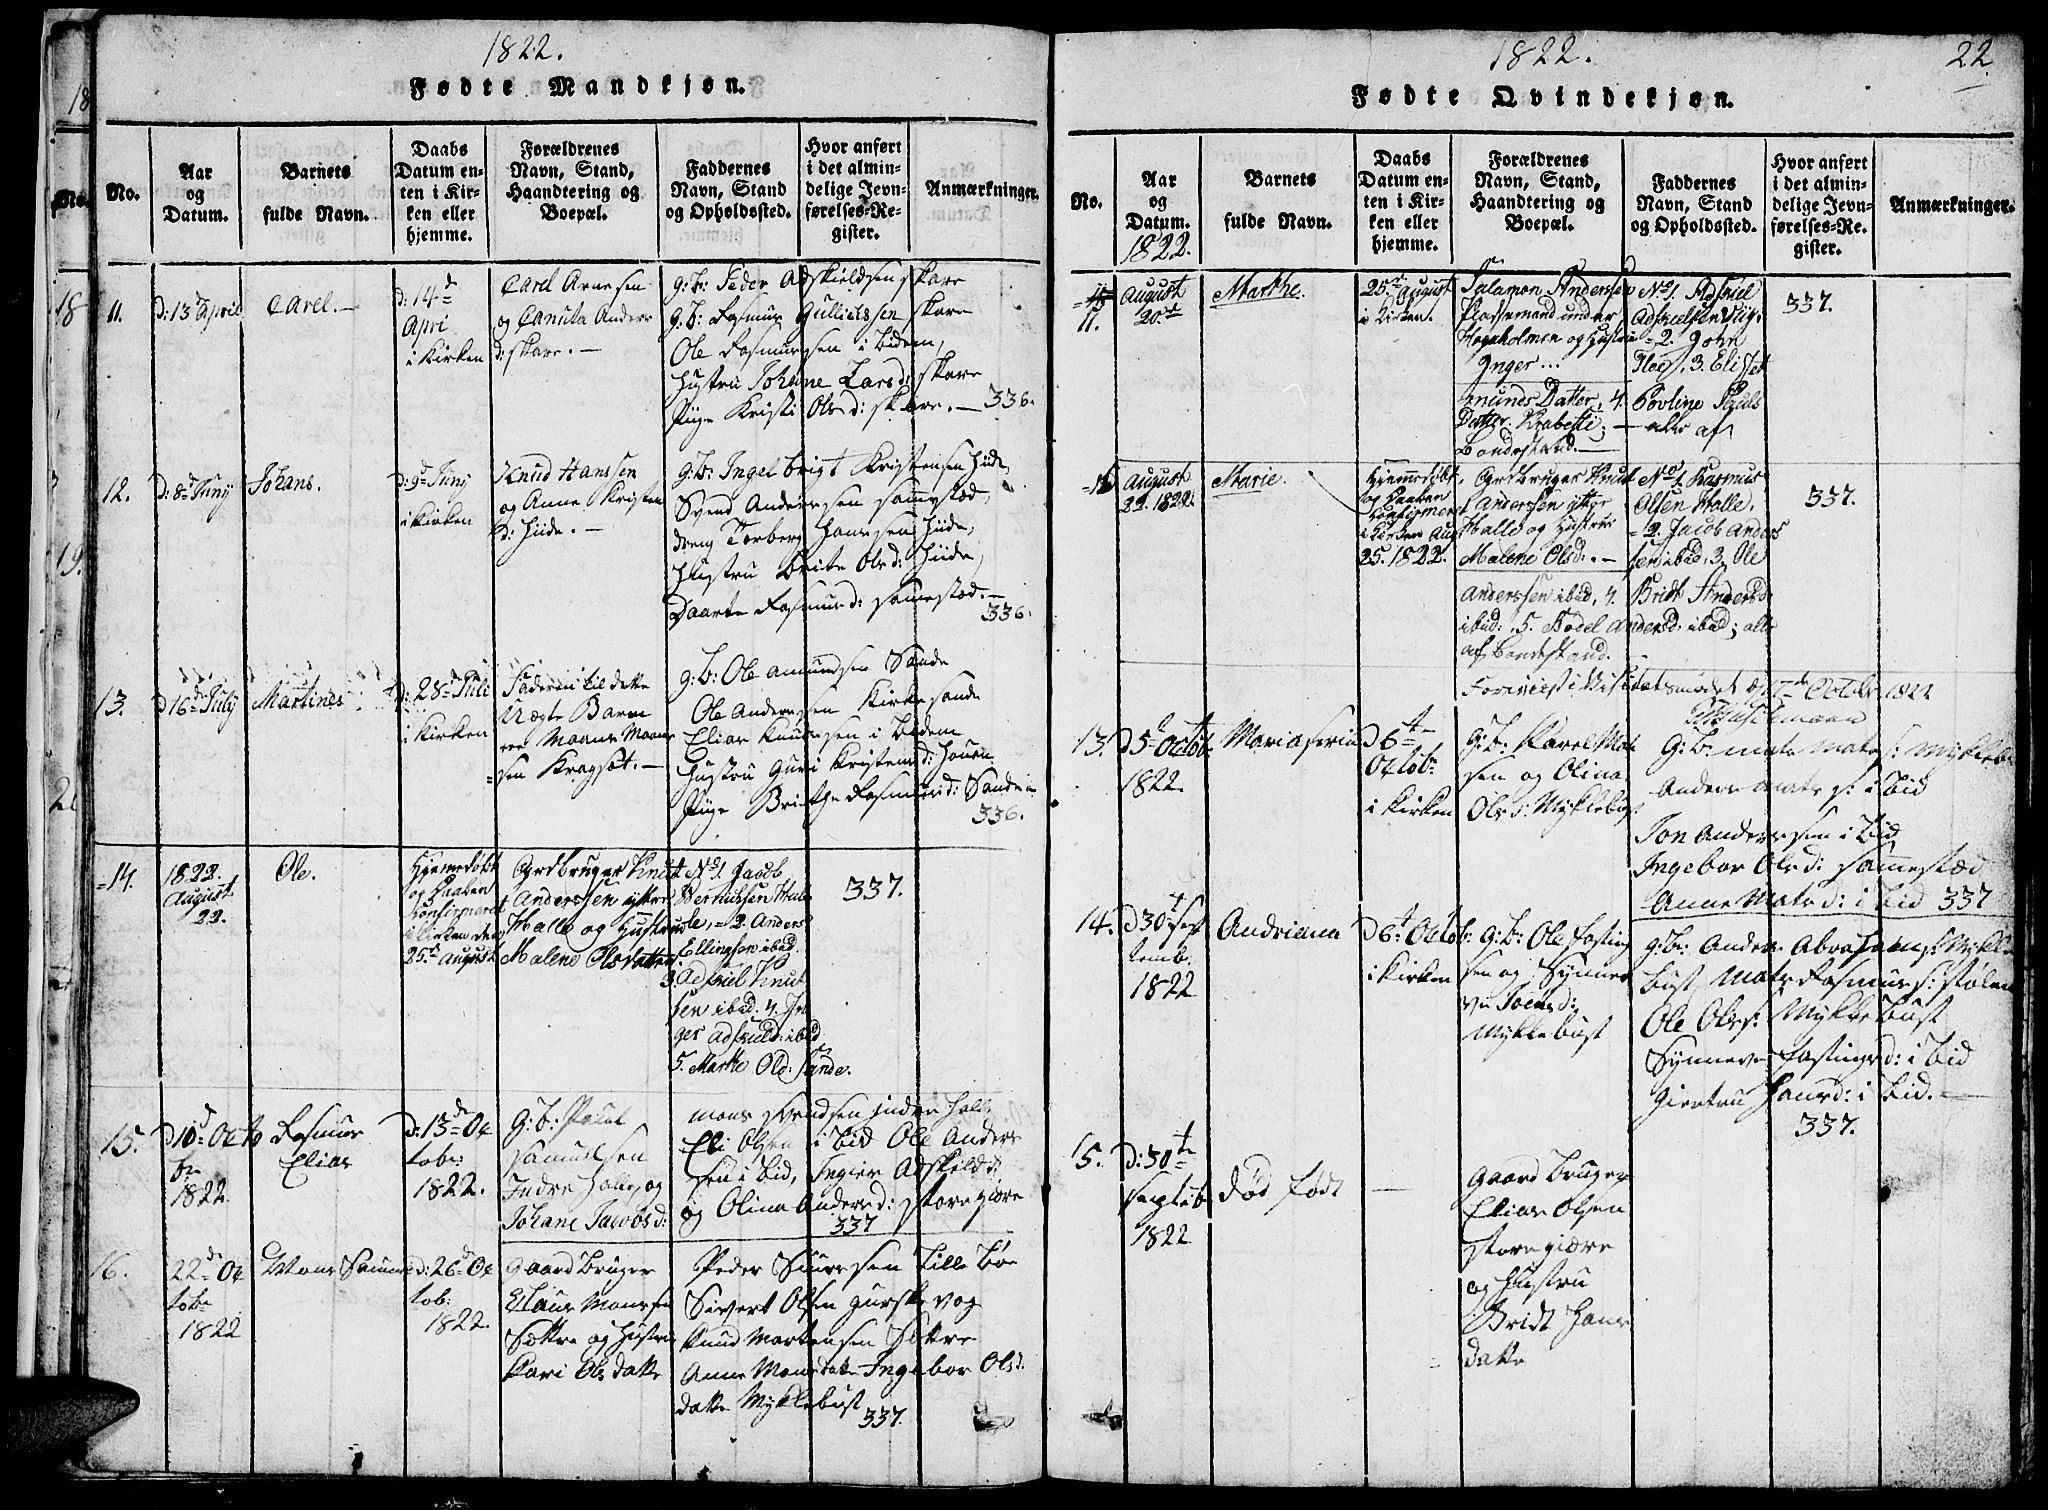 1822.
Fødte Mandkjøn.
No.
Aar og Datum.
Barnets fulde Navn.
Daabs Datum enten i Kirken eller hjemme.
Forældrenes Navn, Stand, Haandtering og Boepæl.
Faddernes Navn, Stand og Opholdssted.
Hvor anført i det almindelige Jevnførelses-Register.
Anmærkninger.
11.
d: 13 April
Carel. —
d: 14d
Apri
i Kirken
Carel Arnesen
og Canuta Anders
d: skare. —
g: b: Peder Adskieldsen skare
g: b: Rasmus Gullietssen skare
Ole Rasmussen i bidem,
Hustru Johane Lars d: skare
Pige Kristi Ols d: skare. — 336.
12.
d: 8d Juny
Johans.
d: 9d Juny
i Kirken
Knud Hanssen
og Anne Kristen
d: Hide. —
g: b: Ingelbrigt Kristensen Hide,
Svend Andersen samestæd,
dreng Torberg Hansen Hide,
Hustru Brite Ols d: Hide,
Daarte Rasmus d: samestæd. —
336.
13.
d 16d July
Martines
d: 28d Juli
i Kirken
Faderen til dette
Uægte Barn
er Maans Maans
sen Kragsæt. —
g: b: Ole Amundsen Sande
Ole Andersen Kirkesande
Elias Knudsen i bidem
Hustru Guri Kristens d: Houen
Pige Brithe Rasmus d: Sande
336.
14.
1822.
August
22.
Ole.
Hjemmedøbt
og Daaben
konfirmeret
i Kirken den
25de August
Grdbruger Knut
Anderssen ytter
Halle og Hustru
Malene Olsdatter
No 1. Jacob
Berntssen Hal-
le, - 2. Anders
Ellingsen ibid.
3. Adskiel Knut
sen ibid. 4. In
ger Adskield: ibid
5. Marthe Old: Sande.
337.
15.
d 10d Octo
br
1822.
Rasmus
Elias
d: 13d Oc
tobr:
1822.
g: b: Poul
Samuelsen
Indre Halle, og
Johane Jacobs d:
Mons Svendsen Indre Halle
Eli Olsen i bid Ole Anders
sen i bid, Ingier Adskild d:
og Olina Anders d: storegiære
337
16.
22d Oc
tobr
1822
Mons Samuel
d: 26d Oc
tob:
1822.
Gaard bruger
Claus Monssen
Sættre og Hustru
Kari Ols datte
Peder Siursen Lille Bøe
Sivert Olsen Gurskevog
Knud Martensen Sættre
Anne Mons datte Ingebor Ols d.
datte Myklebust
337.
1822.
22
Fødte Qvindekjøn.
No.
Aar og Datum.
1822.
Barnets fulde Navn.
Daabs Datum enten i Kirken eller hjemme.
Forældrenes Navn, Stand, Haandtering og Boepæl.
Faddernes Navn, Stand og Opholdssted.
Hvor anført i det almindelige Jevnførelses-Register.
Anmærkninger.
11.
August
20de
Marthe.
25de August
i Kirken.
Salamon Anderssen
Pladsemand under
Høgeholmen og Hustru
Inger ...
No 1. Adskiel
Adskielsen
- 2. John
3. Elisset
Datter, 4. Povline Pouls
Datter — alle af
Bondestand. —
337.
August
22. 1822.
Marie.
Hjemmedøbt
og Daaben
konfirmeret
i Kirken Aug
25. 1822.
Grdbruger Knut
Anderssen ytter
Halle og Hustrue
Malene Olsd. —
No 1. Rasmus
Olsen Halle.
- 2. Jacob Anders
sen ibid, 3. Ole
Anderssen ibid, 4. Bridt Andersd
ibid: 5. Bodel Andersd: ibid; alle
af Bondestand.
337.
Foreviist i Visitatsmødet d 17de October 1822
13.
d 5d Octobr
1822.
Maria Serine
d 6te
Octobr
i Kirken
g: b: Karel Mat
sen og Olina
Ols d: Myklebost
g: b: Mats Mats s: Myklebu
Anders Mats s: i bid
Jon Anderssen i bid
Ingebor Ols d: samestæd
Anne Mats d: i bid 337
14.
d 30t Sep
temb.
1822
Andriana
d 6t Octob:
i Kirken
g: b: Ole Fasting
sen og Synnev
Joens d:
Myklebust
g: b: Anders Abrahams s: Mykle
bust Mats Rasmus s: Stølen
Ole Ols s: Myklebust
Synneve Fastings d: i bid
Giertru Hans d: i bid. —
337.
15.
d: 30te
Septeb.
1822
Død født
—
Gaard bruger
Elias Olsen
Storegiære
og Hustru
Bridt Hans
datte